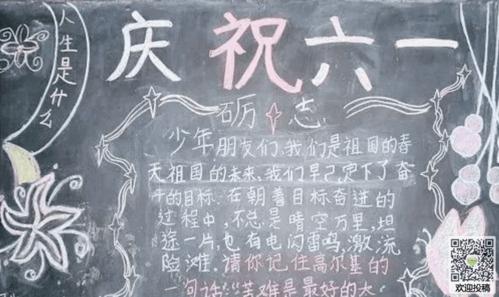 庆祝六一
人生是什么
砺志
少年朋友们，我们是祖国的春
天祖国的未来，我们早已定下了奋
斗的目标。在朝着目标奋进的
过程中，不总是晴空万里，坦
途一片，也有电闪雷鸣，激流
险滩。请你记住高尔基的
一句话："苦难是最好的大
欢迎投稿